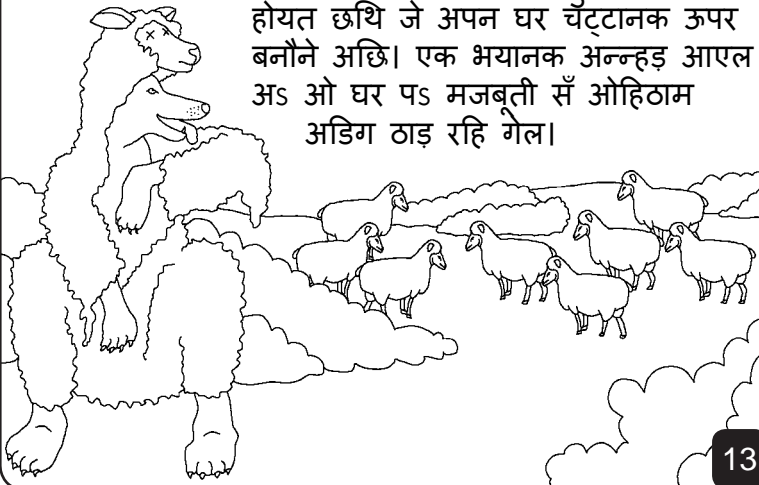 होयत छथि जे अपन घर चट्टानक ऊपर
बनौने अछि। एक भयानक अन्न्हड़ आएल
अऽ ओ घर पऽ मजबूती सँ ओहिठाम
अडिग ठाड़ रहि गेल।
13